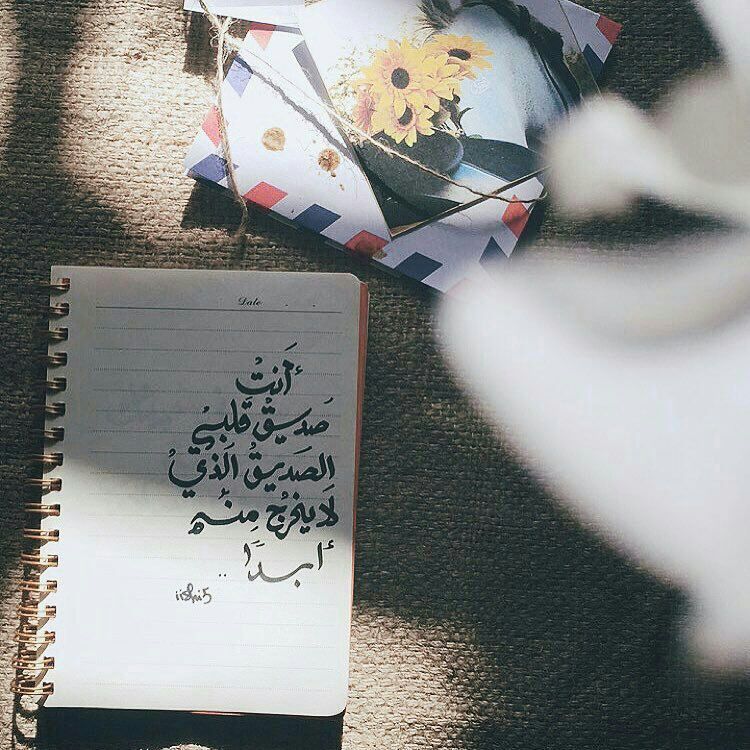 Date
أَنتْ
صَديقْ قَلبيْ
الصَديقُ الَذيْ
لَا يخرُج مِنْهِ
أبدًا ..
iishi5